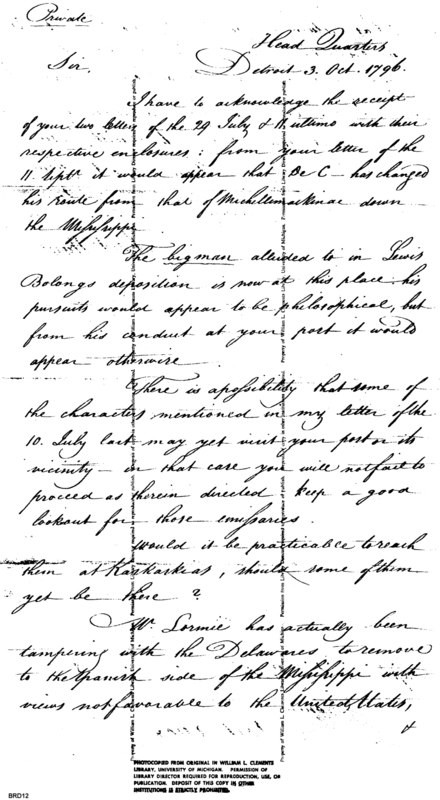 Private
Head Quarters
Sir,
Detroit 3. Oct. 1796.
I have to acknowledge the receipt
of your two letters of the 29 July & 11 ultimo with their
respective enclosures: from your letter of the
11 Sept it would appear that De C— has changed
his route from that of Michillimackinac down
the Mississippi
The bigman alluded to in Lewis
Bolongs deposition is now at this place. his
pursuits would appear to be philosophical, but
from his conduct at your post it would
appear otherwise
There is a possibility that some of
the characters mentioned in my letter of the
10. July last may yet visit your post or its
vicinity — in that case you will not fail to
proceed as therein directed keep a good
lookout for those emissaries.
would it be practicable to reach
them at Kaskaskias, should some of them
yet be there ?
Mr Lormie has actually been
tampering with the Delawares to remove
to the Spanish side of the Mississippi with
views not favorable to the United States,
&
Property of William L. Clements Library, University of Michigan.
PHOTOCOPIED FROM ORIGINAL IN WILLIAM L. CLEMENTS
LIBRARY, UNIVERSITY OF MICHIGAN. PERMISSION OF
LIBRARY DIRECTOR REQUIRED FOR REPRODUCTION, USE, OR
PUBLICATION. DEPOSIT OF THIS COPY IN OTHER
INSTITUTIONS IS STRICTLY PROHIBITED.
BRD12